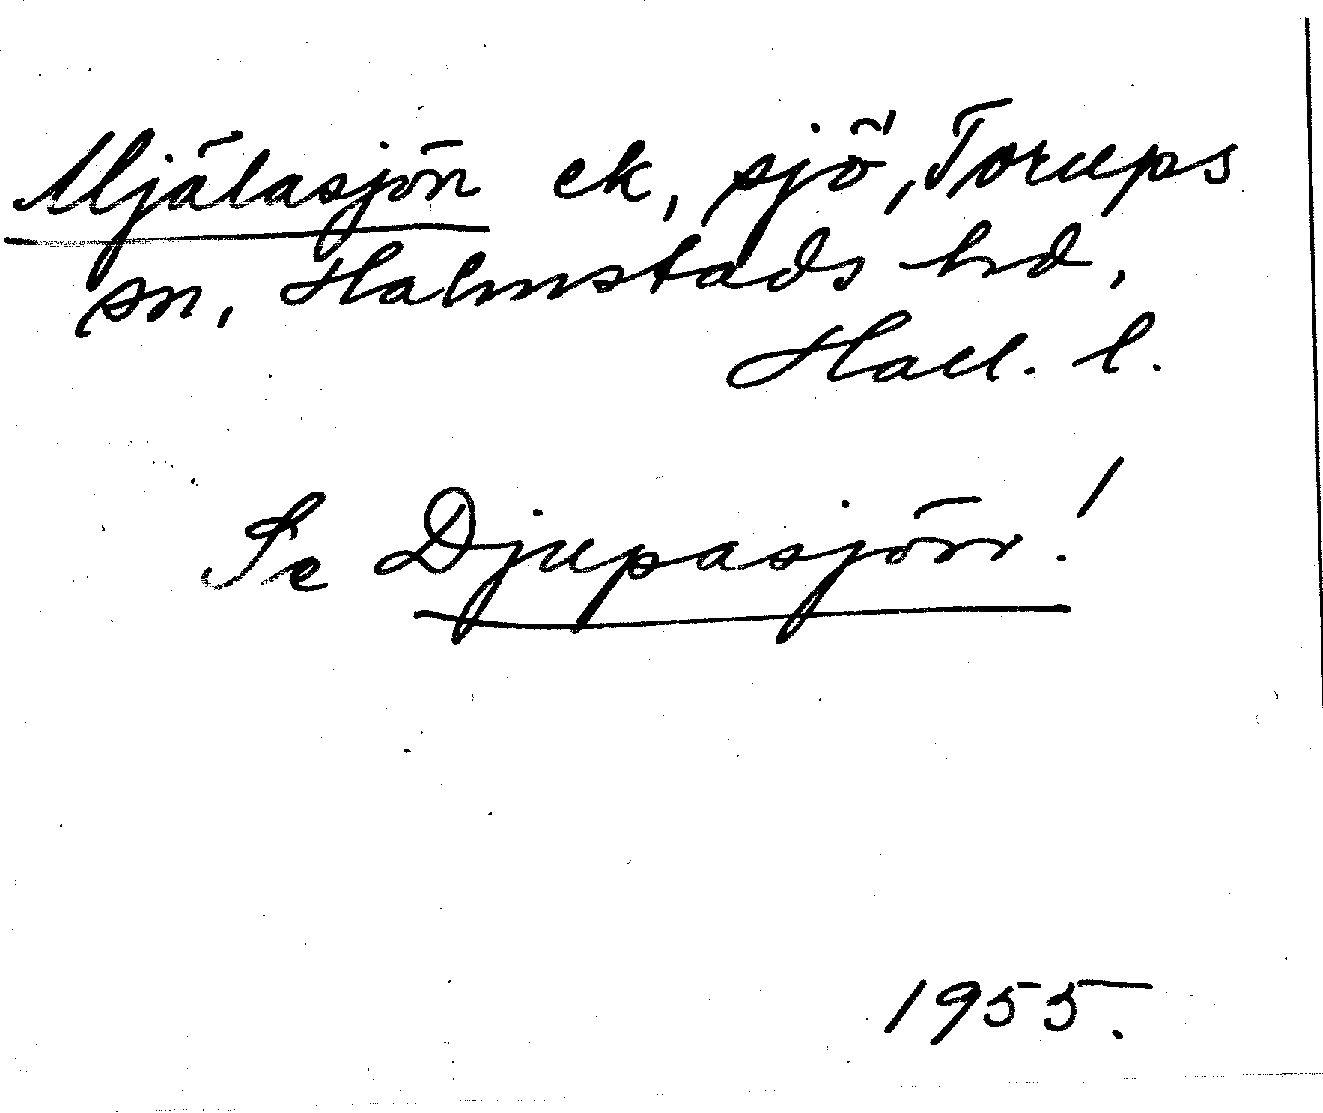 Mjälasjön ek, sjö, Torups
sn, Halmstads hd,
Hall. l.
Se Djupasjön!
1955.